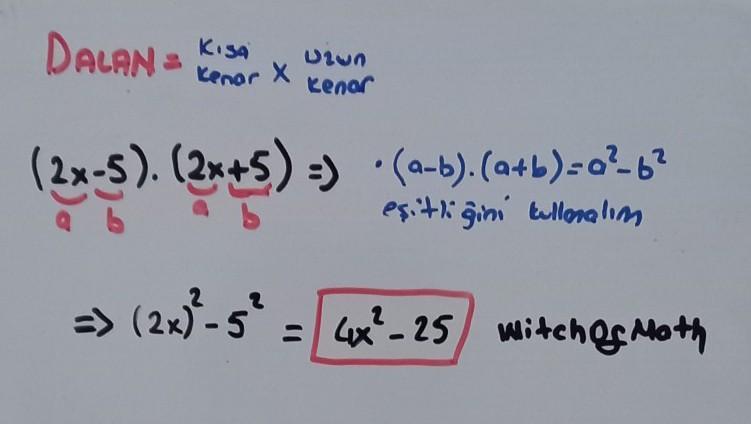 DALAN = Kısa kenar x Uzun kenar
(2x-5).(2x+5) => • (a-b).(a+b)=a²-b²
a b a b eşitliğini kullanalım
=> (2x)²-5² = 4x²-25 WitchOfMath